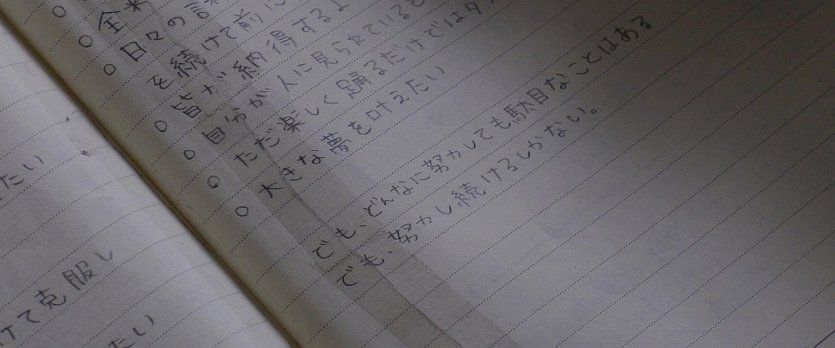 たい
けて克服し
たい
○
○ 全
○ 日々の
を続けて前に
○ 皆が納得する
○ 自分が人に見られていると
○ ただ楽しく踊るだけではダメ
○ 大きな夢を叶えたい
でも、どんなに努力しても駄目なことはある
でも、努力し続けるしかない。